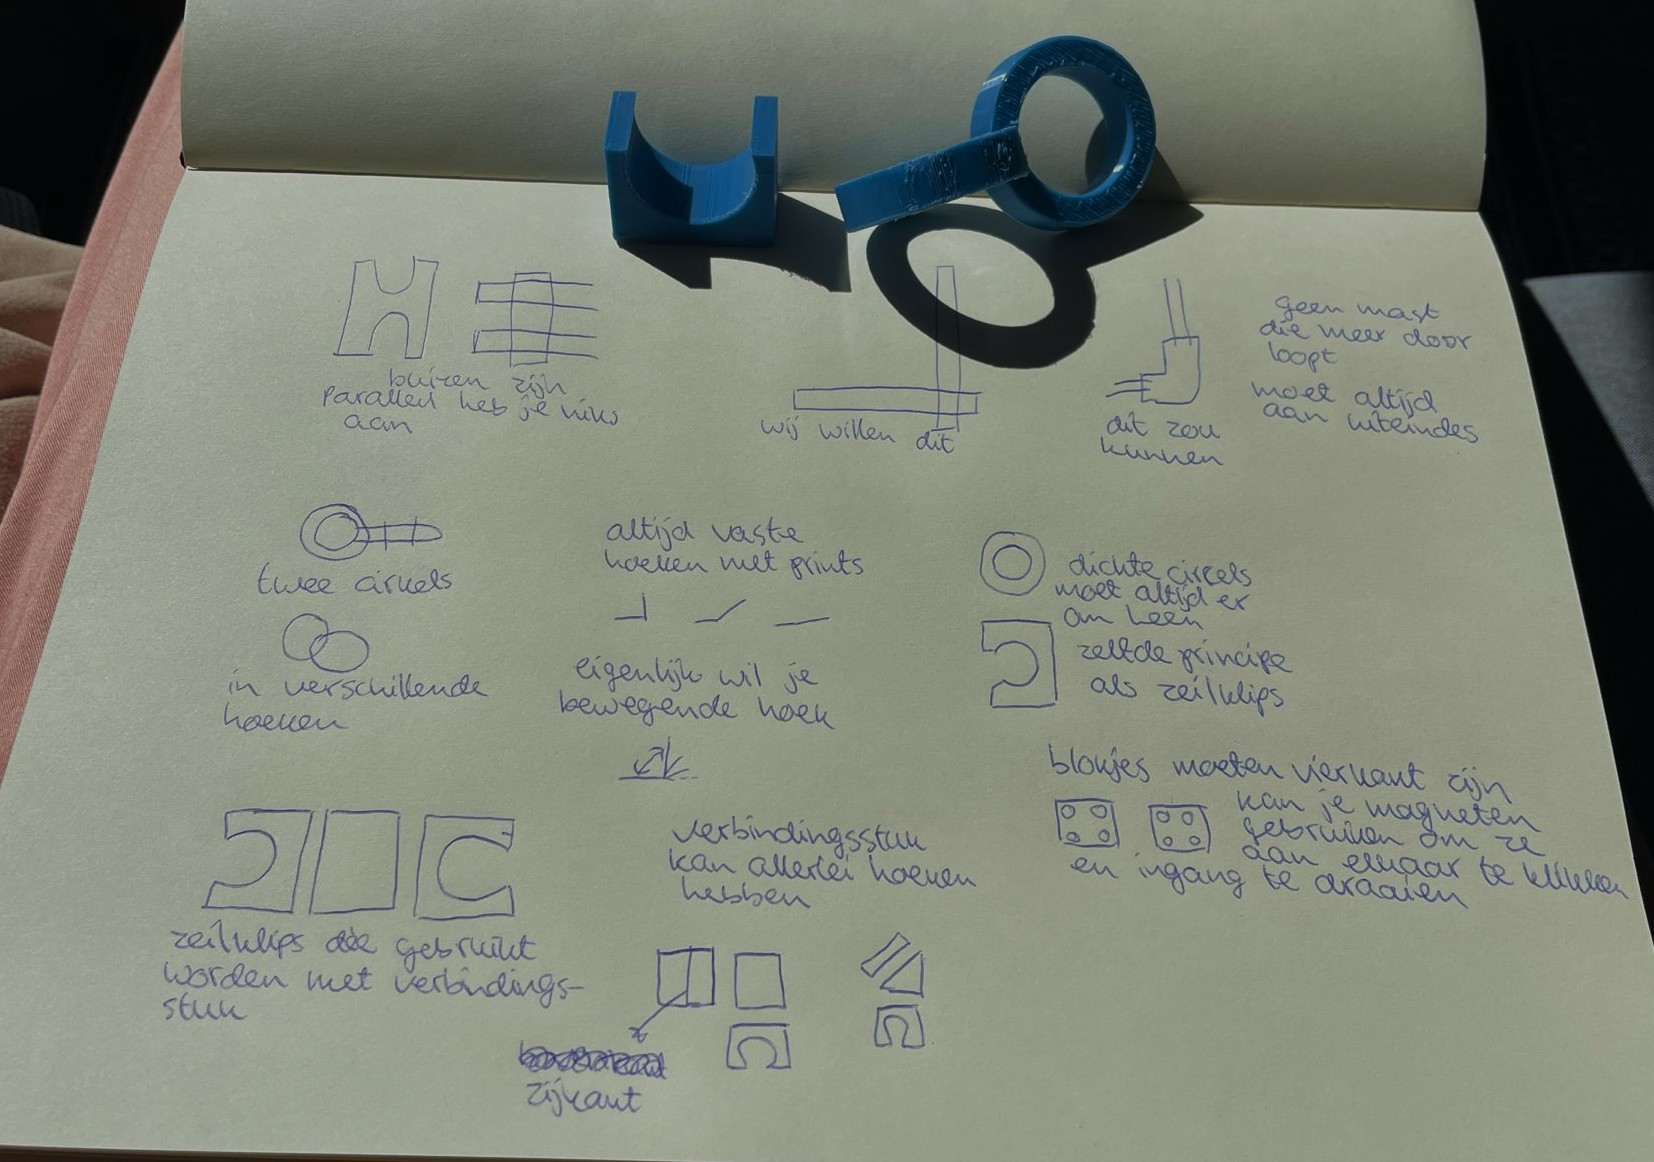 buizen zijn
parallel heb je niks
aan
wij willen dit
dit zou
kunnen
geen mast
die meer door
loopt
moet altijd
aan uiteindes
twee cirkels
in verschillende
hoeken
altijd vaste
hoeken met prints
eigenlijk wil je
bewegende hoek
dichte circels
moet altijd er
om heen
zelfde principe
als zeilklips
blokjes moeten vierkant zijn
kan je magneten
gebruiken om ze
aan elkaar te klikken
en ingang te draaien
zeilklips die gebruikt
worden met verbindings-
stuk
verbindingsstuk
kan allerlei hoeken
hebben
zijkant